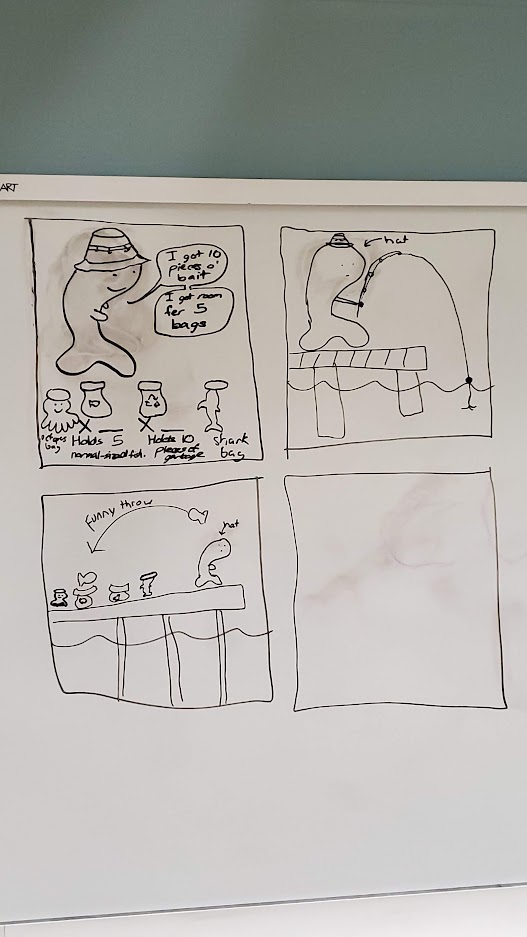 ART
I got 10
pieces o'
bait
I got room
fer 5
bags
octopus
bag
Holds 5
normal-sized fish.
Holds 10
pieces of
garbage
shark
bag
hat
funny throw
hat